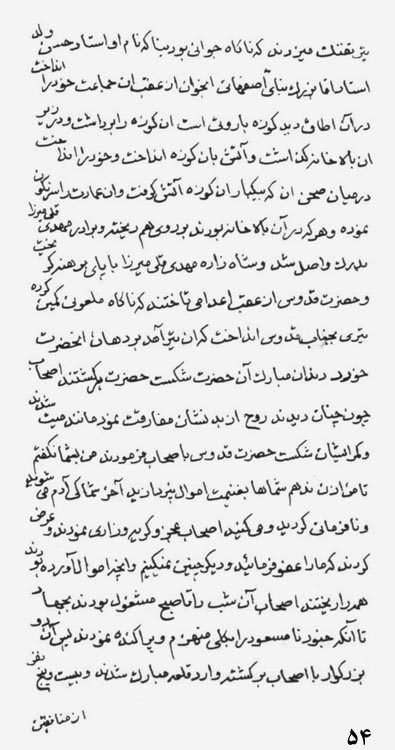 تیر تفنگ میزدند که ناگاه جوانی بود بنا که نام او استاد حسن ولد
استاد اقا بزرك بنای اصفهانی انجوان از عقب ان جماعت خود را انداخت
در آن اطاق دید کوزه باروتی است ان کوزه را برداشت و در زیر
ان بالاخانه گذاشت و آتش بان کوزه انداخت و خود را انداخت
در میان صحن ان که یکبار ان کوزه آتش گرفت و ان عمارت را سرنگون
نموده و هر که در آن بالاخانه بودند بروی هم ریخته و برادر مهدی قلی میرزا
بدرك واصل شد و شاه زاده مهدی قلی میرزا با پای برهنه گریخت
و حضرت قدوس از عقب اعدا می تاختند که ناگاه ملعونی کمین کرده
تیری بجناب قدوس انداخت که ان تیر آمد بر دهان انحضرت
خورد دندان مبارك آن حضرت شکست حضرت برگشتند اصحاب
چون چنان دیدند روح از بدنشان مفارقت نمود مانند میت شدند
و کمر ایشان شکست حضرت قدوس با صحاب فرمودند من بشما نگفتم
تا من اذن ندهم شماها بغنیمت اموال نپردازید آخر شما کی آدم می شوید
و نافرمانی کردید و می کنید اصحاب عجز و گریه و زاری نمودند و عرض
کردند که ما را عفو فرمائید و دیگر چنین نمیکنیم و انچه اموال آورده بودند
همه را ریختند اصحاب آن شب را تا صبح مشغول بودند بجهاد
تا آنکه جنود نا مسعود را بکلی منهزم و پراکنده نمودند پس آن
بزرگوار با اصحاب برگشته وارد قلعه مبارك شدند و بیست و پنج نفر
از منافقین
۵۴